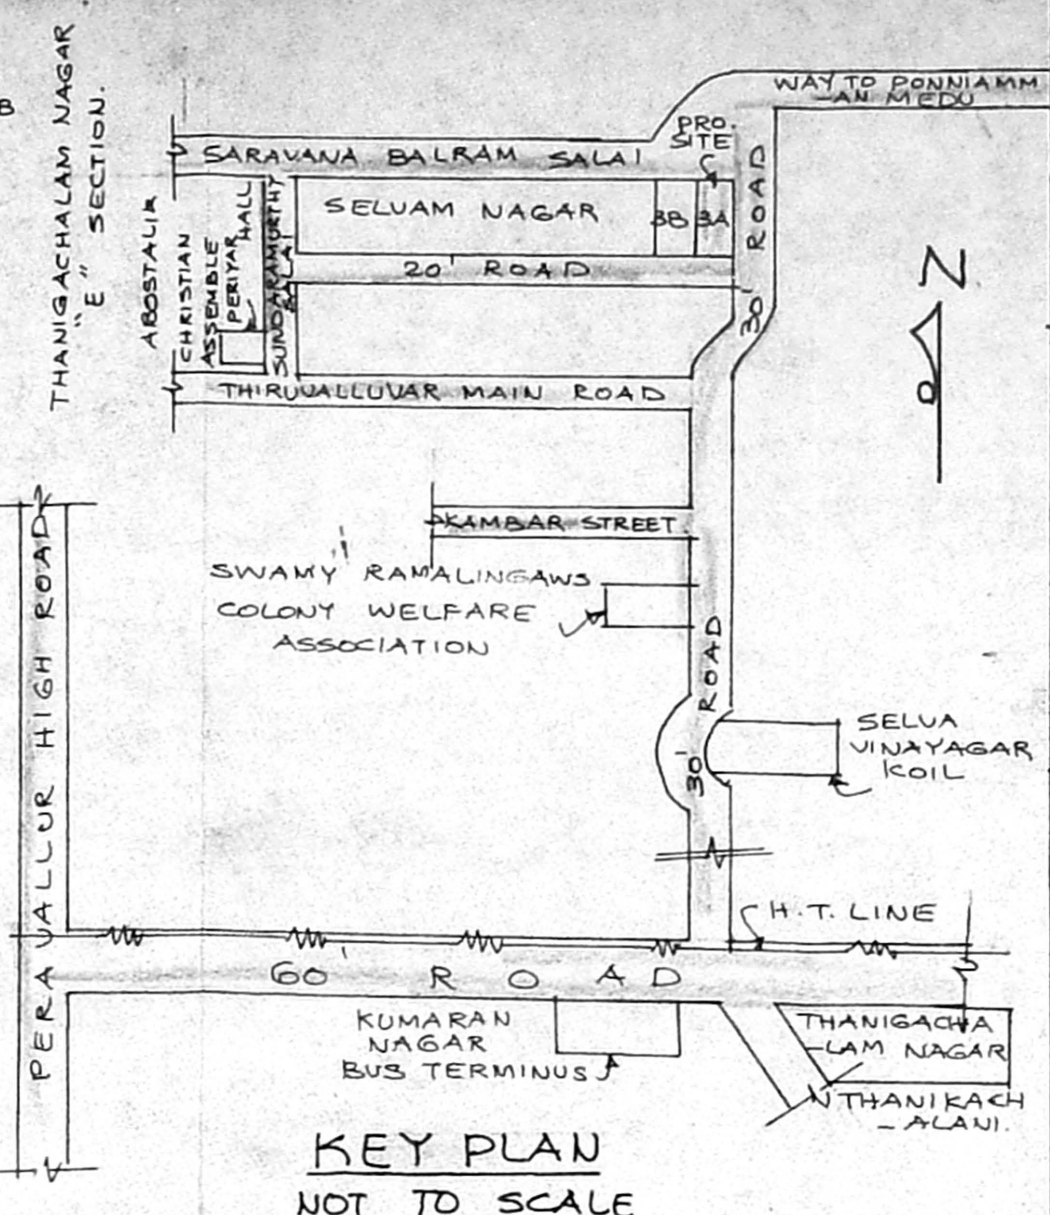 B
THANIGACHALAM NAGAR
"E" SECTION.
WAY TO PONNIAMM
-AN MEDU
PRO.
SITE
SARAVANA BALRAM SALAI
SELVAM NAGAR
3B
3A
30' ROAD
20' ROAD
ABOSTALIK
CHRISTIAN
ASSEMBLE
PERIYAR
HALL
SUNDARAMURTHY
SALAI
N
THIRUVALLUVAR MAIN ROAD
KAMBAR STREET.
SWAMY RAMALINGAWS
COLONY WELFARE
ASSOCIATION
30' ROAD
SELVA
VINAYAGAR
KOIL
PERAVALLUR HIGH ROAD
H.T. LINE
60' ROAD
KUMARAN
NAGAR
BUS TERMINUS
THANIGACHA
-LAM NAGAR
THANIKACH
- ALANI.
KEY PLAN
NOT TO SCALE